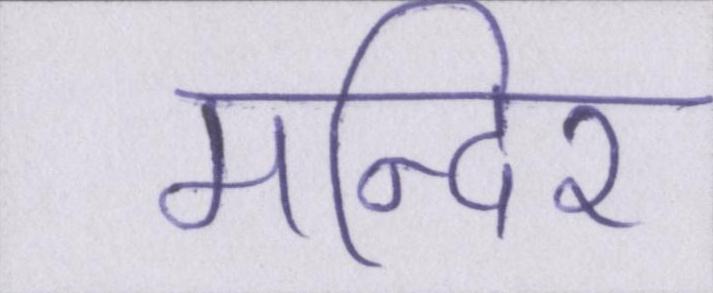 मन्दिर